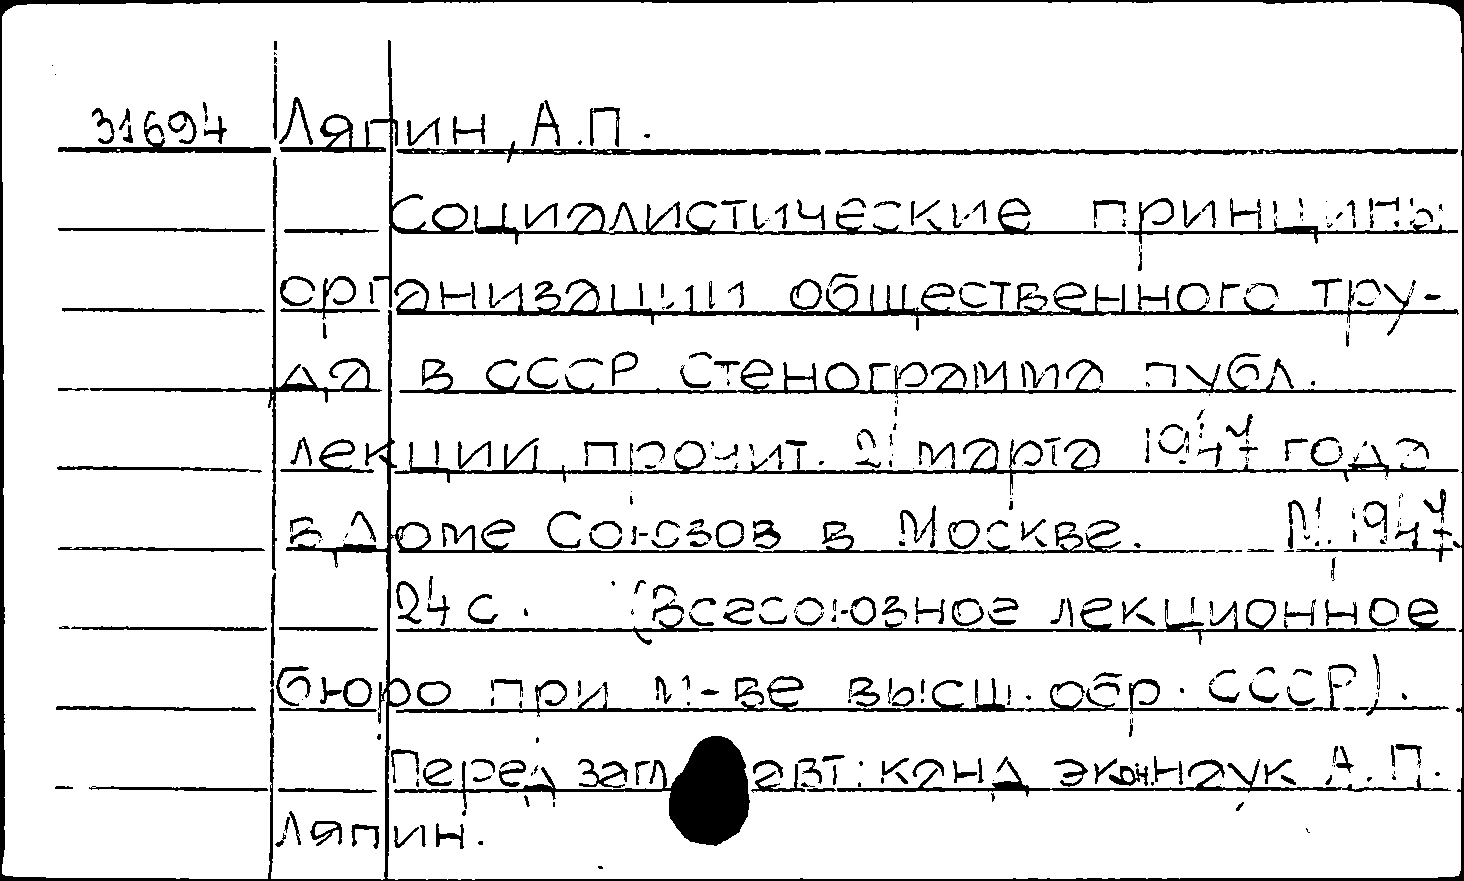 31694 Ляпин, А.П.
Социалистические принципы
организации общественного тру-
да в СССР. Стенограмма публ.
лекции, прочит. 21 марта 1947 года
в Доме Союзов в Москве. М. 1947.
24 с. (Всесоюзное лекционное
бюро при М-ве высш. обр. СССР).
Перед загл. авт: канд экон.наук А.П.
Ляпин.